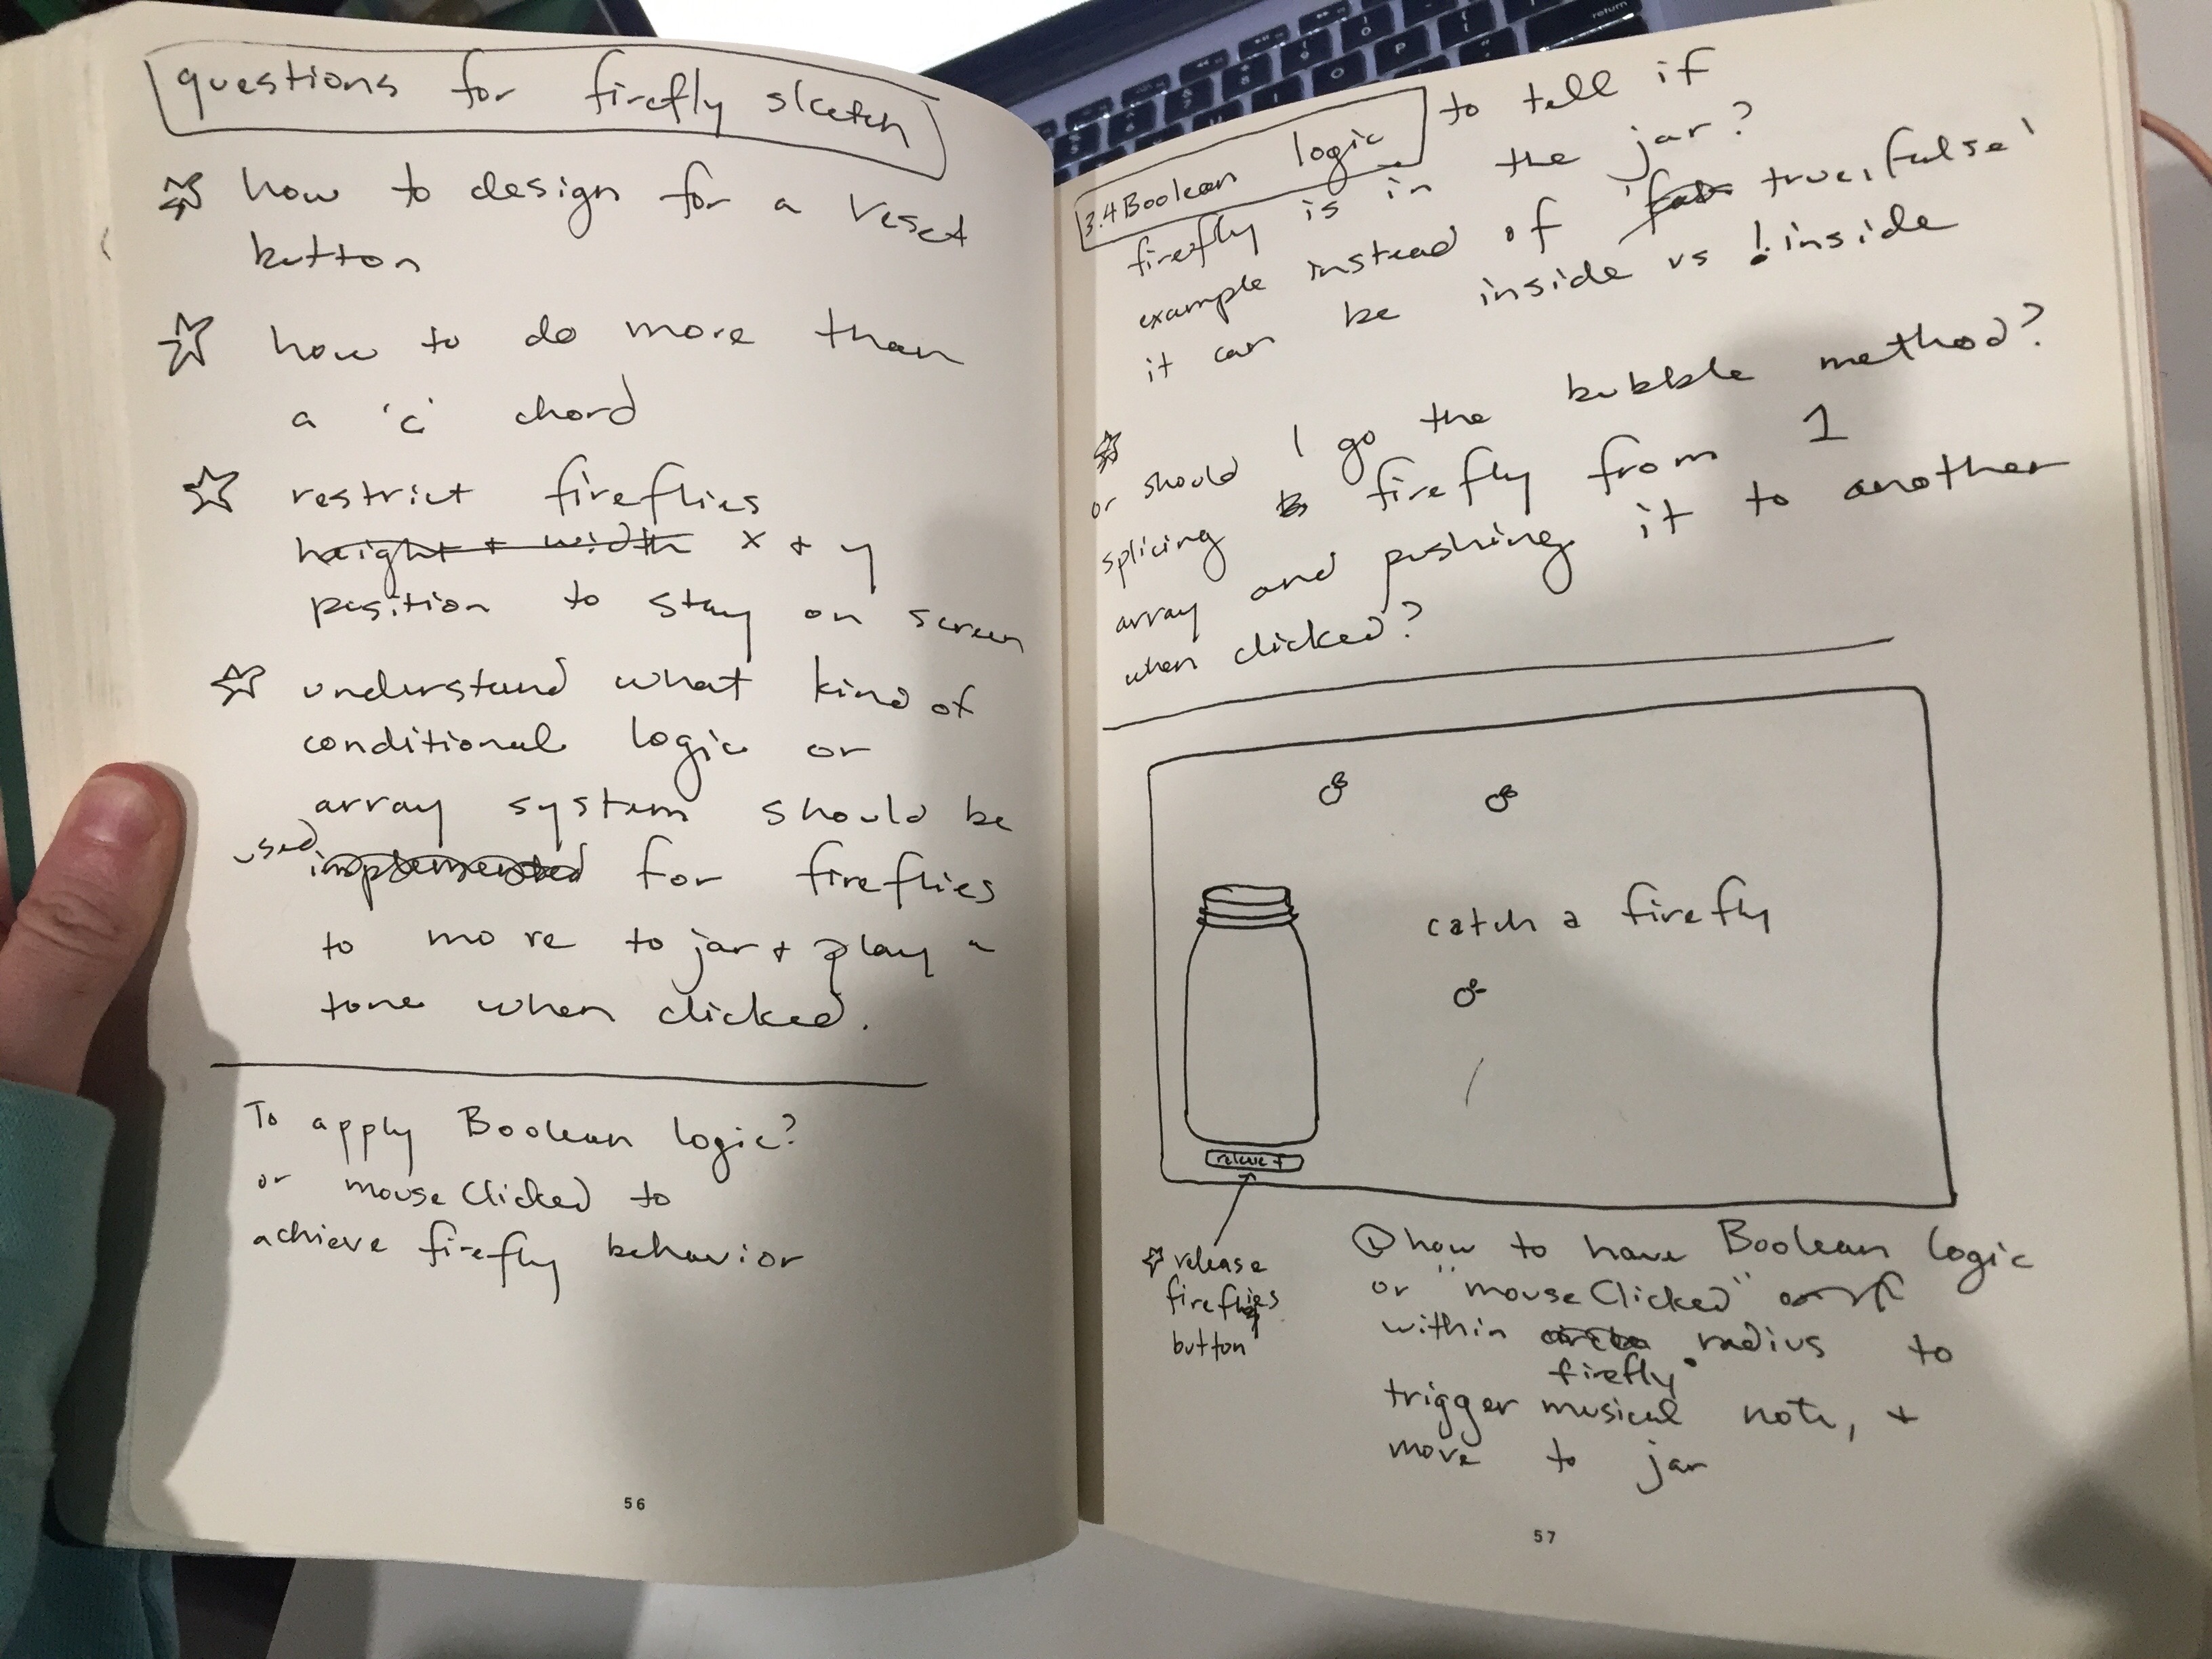 questions for firefly sketch
how to design for a reset
button
how to do more than
a 'c' chord
restrict fireflies
height + width x + y
position to stay on screen
understand what kind of
conditional logic or
array system should be
used implemented for fireflies
to move to jar + play a
tone when clicked.
To apply Boolean logic?
or mouseClicked to
achieve firefly behavior
56
3.4 Boolean logic to tell if
firefly is in the jar?
example instead of 'true, false'
it can be inside vs !inside
or should I go the bubble method?
splicing firefly from 1
array and pushing it to another
when clicked?
catch a firefly
release
release
fireflies
button
how to have Boolean logic
or "mouseClicked"
within circle radius to
firefly
trigger musical note, +
move to jar
57
return
P
O